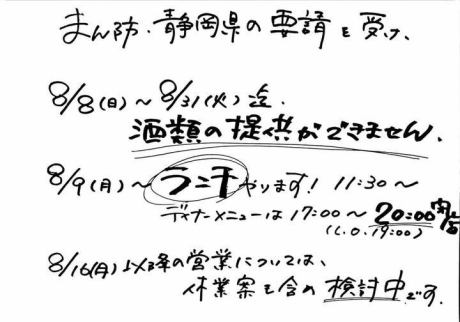 まん防・静岡県の要請を受け、
8/8(日)～8/31(火)迄、
酒類の提供ができません.
8/9(月)～ランチやります! 11:30～
ディナーメニューは17:00～20:00閉店
(L.O.19:00)
8/16(月)以降の営業については、
休業案も含め検討中です.